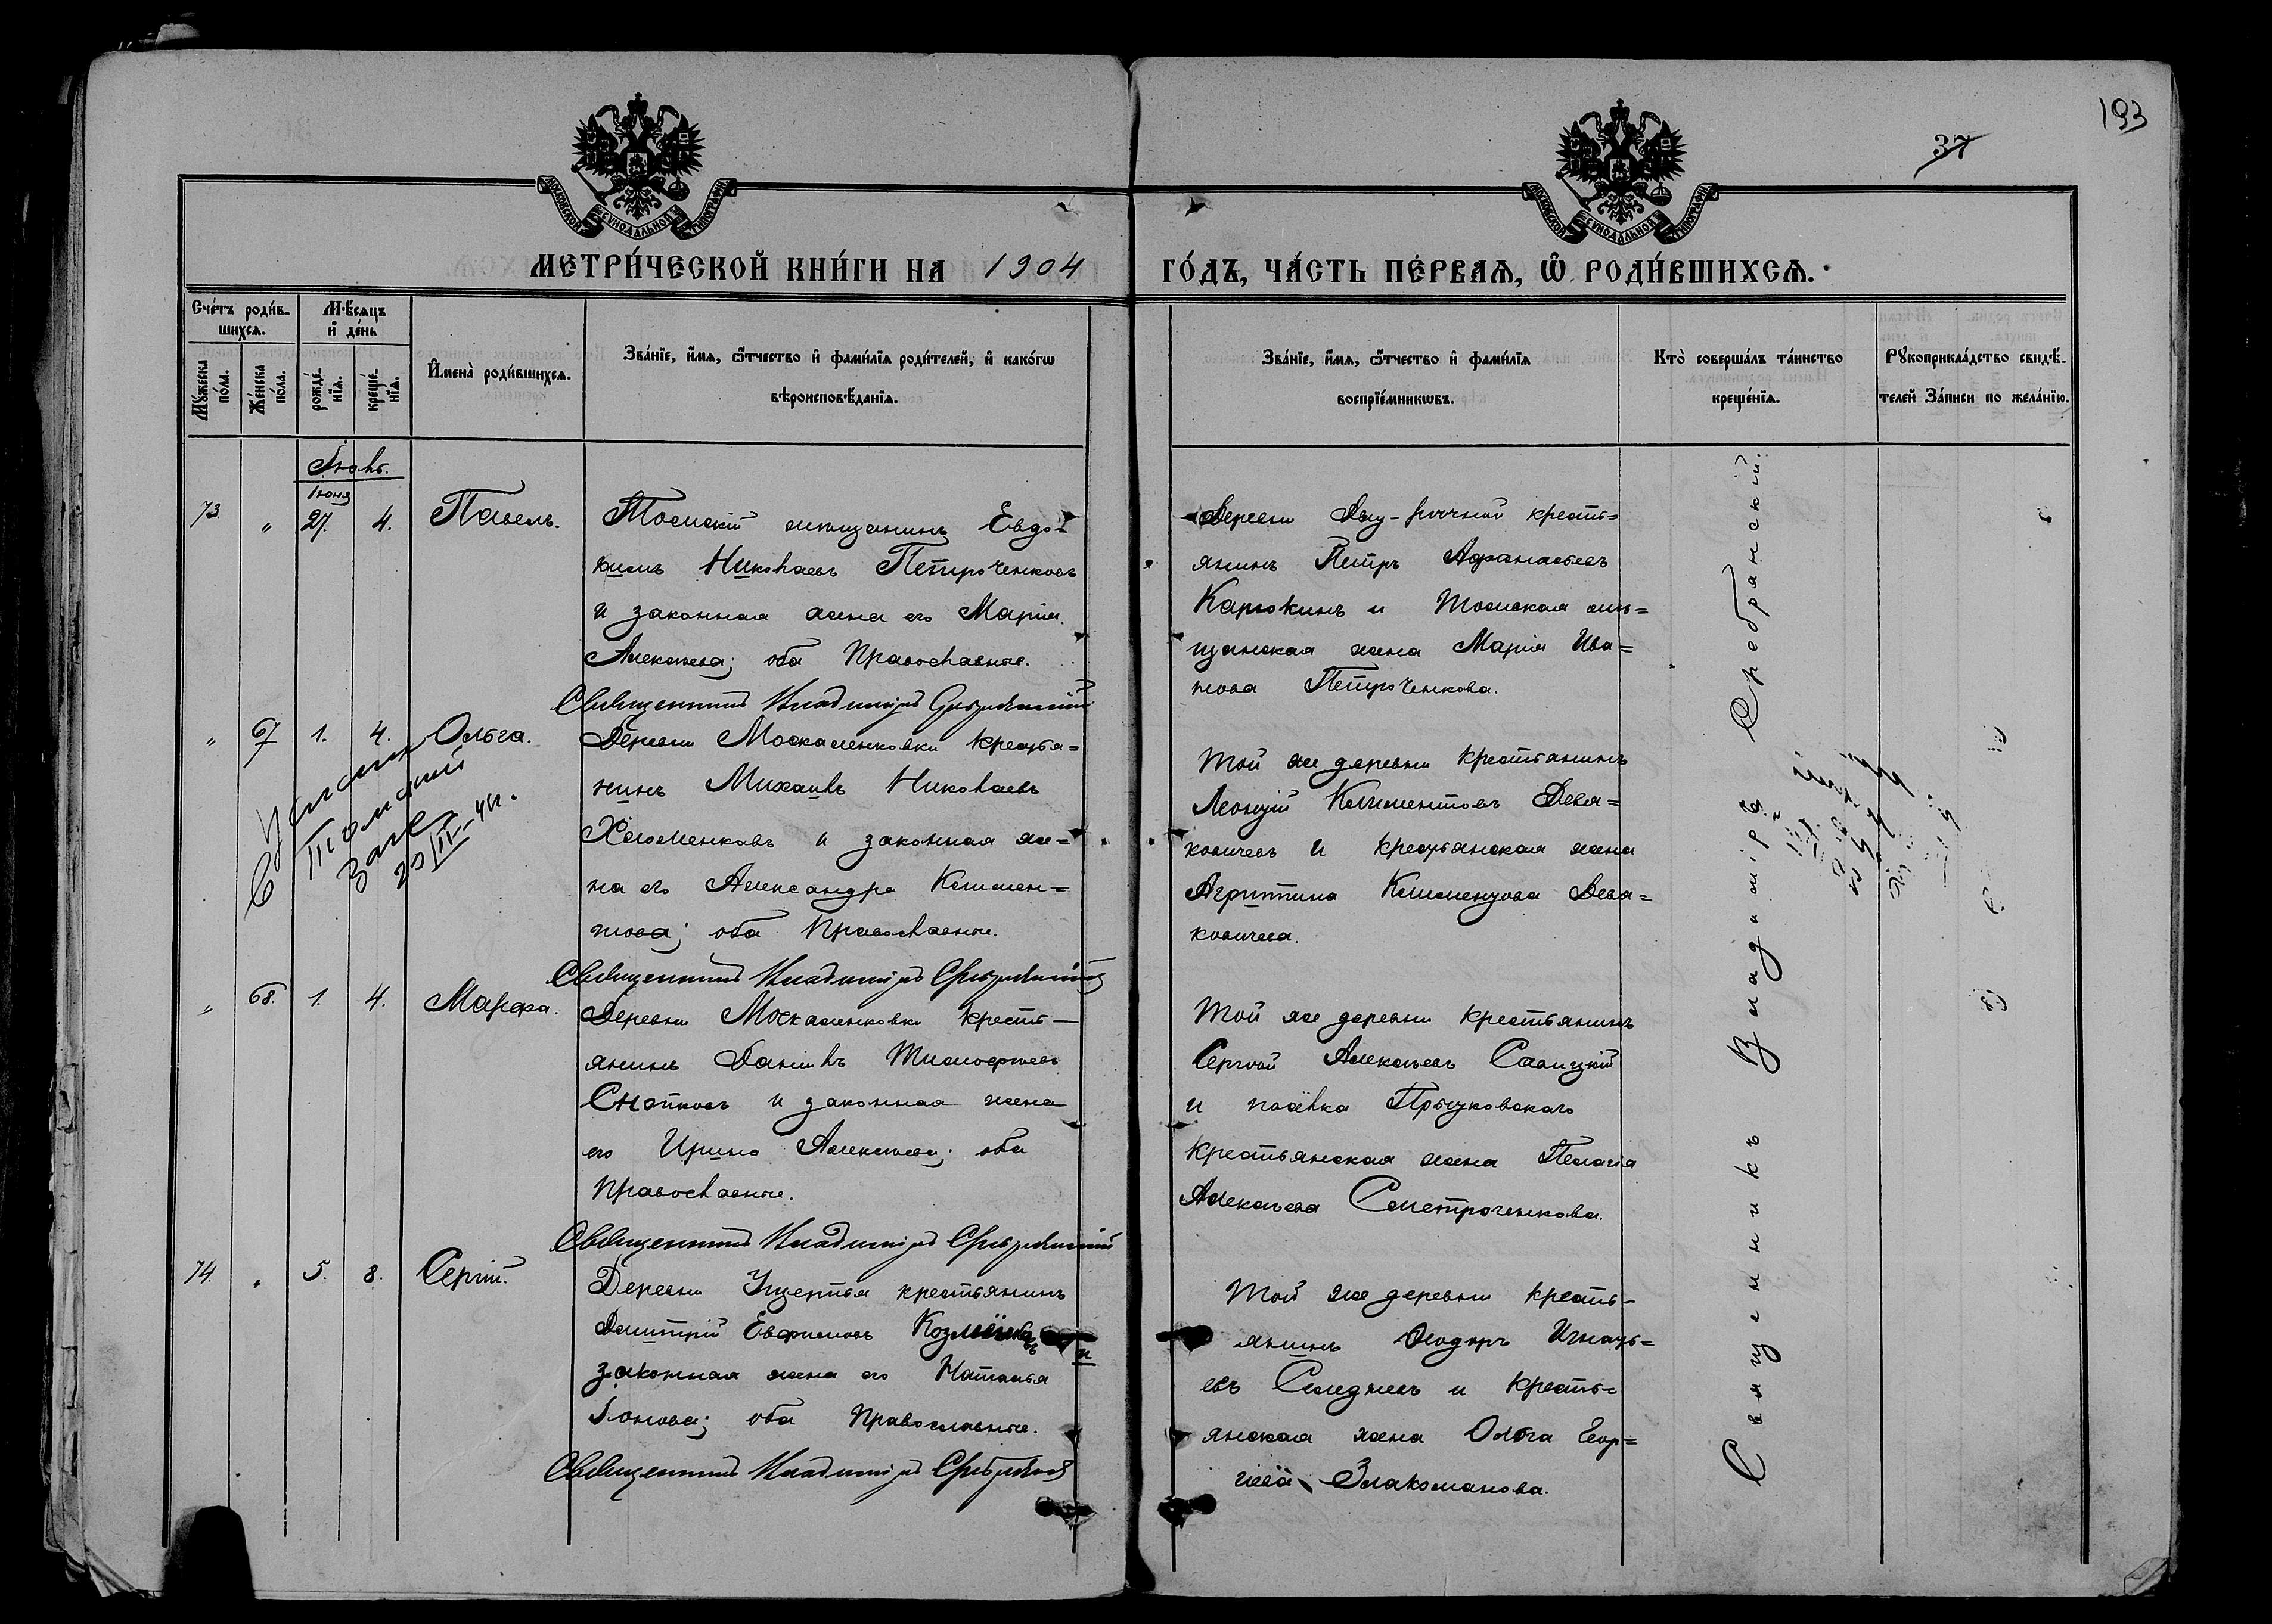 193
37
МОСКОВСКОЙ СѴНОДАЛЬНОЙ ТИПОГРАФІИ
МОСКОВСКОЙ СѴНОДАЛЬНОЙ ТИПОГРАФІИ
МЕТРИ́ЧЕСКОЙ КНИ́ГИ НА 1904
ГО́ДЪ, ЧА́СТЬ ПЕ́РВАѦ, Ѿ РОДИ́ВШИХСѦ.
Сче́тъ роди́вшихся.
Мꙋ́жеска по́ла.
Же́нска по́ла.
Мѣ́сяцъ и҆ де́нь
рожде́нїя.
креще́нїя.
И҆мена̀ роди́вшихся.
Зва́нїе, и҆́мя, ѻ҆́тчество и҆ фами́лїя роди́телей, и҆ како́гѡ
вѣроисповѣ́данїя.
Зва́нїе, и҆́мя, ѻ҆́тчество и҆ фами́лїя
воспрїе́мникѡвъ.
Кто̀ соверша́лъ та́инство
креще́нїя.
Рꙋкоприкла́дство свидѣ́-
телей за́писи по жела́нїю.
Іюль.
Іюня
73. " 27. 4. Павелъ.
Томскій мѣщанинъ Евдо-
кимъ Николаевъ Петроченковъ
и законная жена его Марія
Алексѣева; оба Православные.
Священникъ Владиміръ Сребрянскій
Деревни крестьянинъ Петръ Афанасьевъ
Карюкинъ и Томская мѣ=
щанская жена Марія Ива=
нова Петроченкова.
" 67 1. 4. Ольга.
Деревни Москаленковки крестья=
нинъ Михаилъ Николаевъ
и законная же=
на его Александра Климен=
това; оба Православные.
Священникъ Владиміръ Сребрянскій
Той же деревни крестьянинъ
Леонтій Климентовъ
и крестьянская жена
Агриппина Климентова
20/III-44.
" 68. 1. 4. Марфа.
Деревни Москаленковки кресть-
янинъ Даніилъ Тимофеевъ
Снопковъ и законная жена
его Ирина Алексѣева; оба
Православные.
Священникъ Владиміръ Сребрянскій
Той же деревни крестьянинъ
Сергѣй Алексѣевъ Савицкій
и посёлка
крестьянская жена Пелагія
Алексѣева
74. " 5. 8. Сергій.
Деревни крестьянинъ
Дмитрій Евфимовъ и
законная жена его Наталья
Іонова; оба Православные.
Священникъ Владиміръ Сребрянскій
Той же деревни кресть-
янинъ Ѳеодоръ Игнать=
евъ и кресть=
янская жена Ольга Геор=
гіева Злакоманова.
Священникъ Владиміръ Сребрянскій.